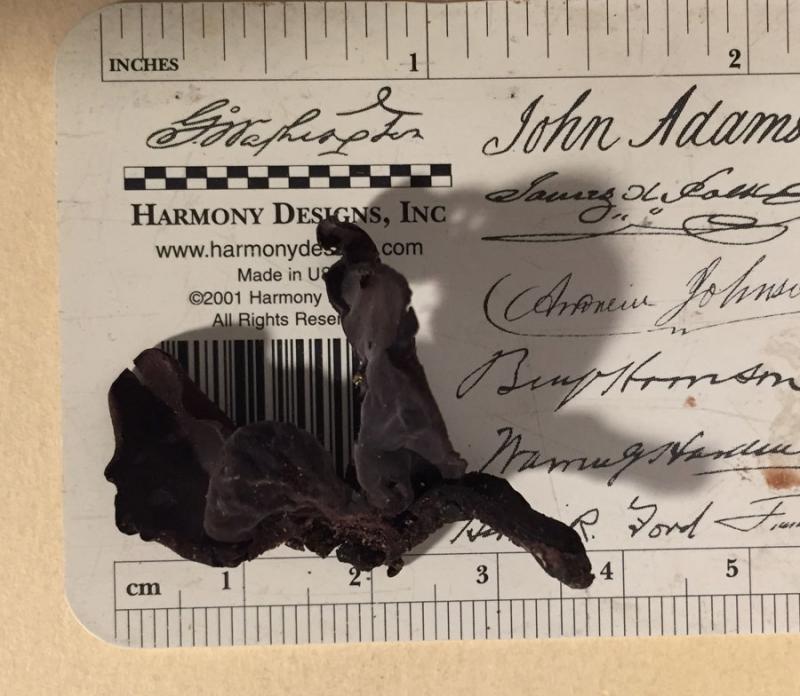 INCHES 1 2
G. Washington John Adams
James K Polk
HARMONY DESIGNS, INC
www.harmonydes .com
Made in US
©2001 Harmony
All Rights Reser
Andrew Johnso
Benj Harrison
Warren G Harding
R. Ford
cm 1 2 3 4 5